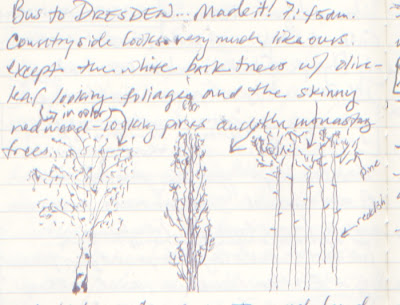 Bus to DRESDEN... Made it! 7:45am.
Countryside looks very much like ours.
except the white bark trees w/ olive-
leaf looking foliage and the skinny
(not in color)
redwood-looking pines and the monastery
trees.
pine
reddish